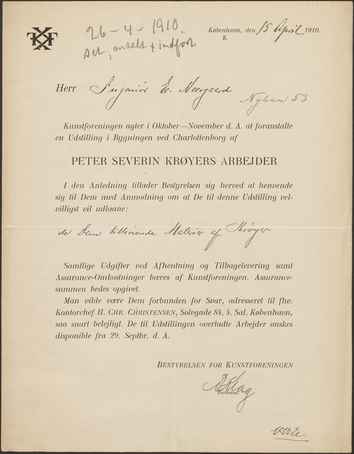 26-4-1910.
København, den 15 April 1910.
K.
Herr Ingeniør
Kunstforeningen agter i Oktober—November d. A. at foranstalte
en Udstilling i Bygningen ved Charlottenborg af
PETER SEVERIN KRØYERS ARBEJDER
I den Anledning tillader Bestyrelsen sig herved at henvende
sig til Dem med Anmodning om at De til denne Udstilling vel-
villigst vil udlaane:
de Dem tilhørende Malerier af Krøyer
Samtlige Udgifter ved Afhentning og Tilbagelevering samt
Assurance-Omkostninger bæres af Kunstforeningen. Assurance-
summen bedes opgivet.
Man vilde være Dem forbunden for Svar, adresseret til fhv.
Kontorchef H. CHR. CHRISTENSEN, Sølvgade 84, 4. Sal, København,
saa snart belejligt. De til Udstillingen overladte Arbejder ønskes
disponible fra 29. Septbr. d. A.
BESTYRELSEN FOR KUNSTFORENINGEN